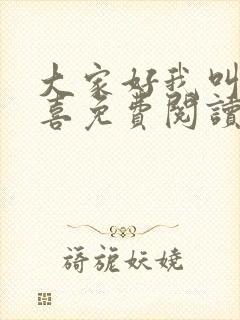 大家好我叫
喜免費閱讀
旖旎妖嬈